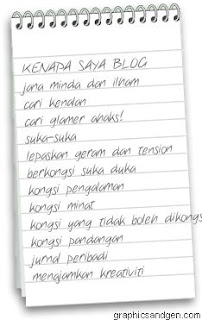 KENAPA SAYA BLOG
jana minda dan ilham
cari kenalan
cari glamer ahaks!
suka-suka
lepaskan geram dan tension
berkongsi suka duka
kongsi pengalaman
kongsi minat
kongsi yang tidak boleh dikongs
kongsi pandangan
jurnal peribadi
menajamkan kreativiti
graphicsandgen.com